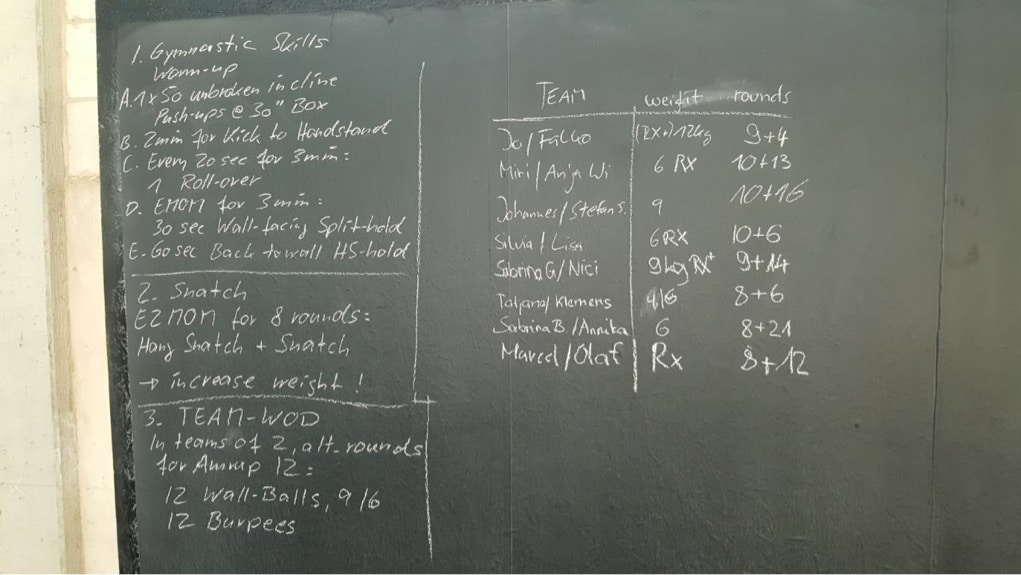 1. Gymnastic Skills
Warm-up
A. 1x50 unbroken incline
Push-ups @ 30" Box
B. 2min for Kick to Handstand
C. Every 20 sec for 3min:
1 Roll-over
D. EMOM for 3min:
30 sec Wall-facing Split-hold
E. 60sec Back to wall HS-hold
2. Snatch
E2MOM for 8 rounds:
Hang Snatch + Snatch
→ increase weight !
3. TEAM-WOD
In teams of 2, alt. rounds
for Amrap 12:
12 Wall-Balls, 9/6
12 Burpees
TEAM weight rounds
Jo/Falko (RX+) 12kg 9+4
Miri/Anja Wi 6 RX 10+13
Johannes/Stefan S. 9 10+16
Silvia/Lisa 6RX 10+6
Sabrina G/Nici 9kg RX+ 9+14
Tatjana/Klemens 9/6 8+6
Sabrina B/Annika 6 8+21
Marcel/Olaf Rx 8+12